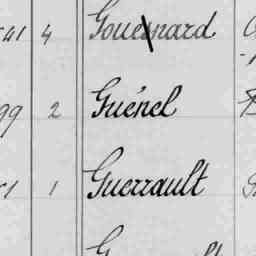 41 4 Gouesnard
99 2 Guénel
51 1 Guerrault